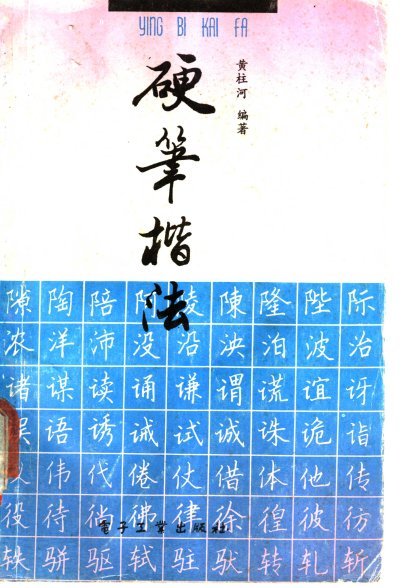 YING BI KAI FA
硬筆楷法
黄柱河 编著
隙 陶 陪 陵 陳 隆 陛 际
浓 洋 沛 没 沿 泱 泊 波 治
诸 谋 读 诵 谦 谓 谎 谊 讶
语 诱 诫 试 诚 诛 诡 诣
伟 伐 倦 仗 借 体 他 传
役 待 徜 律 徐 徨 彼 彷
電子工業出版社
轶 骈 驱 轼 驻 驮 转 轧 斩